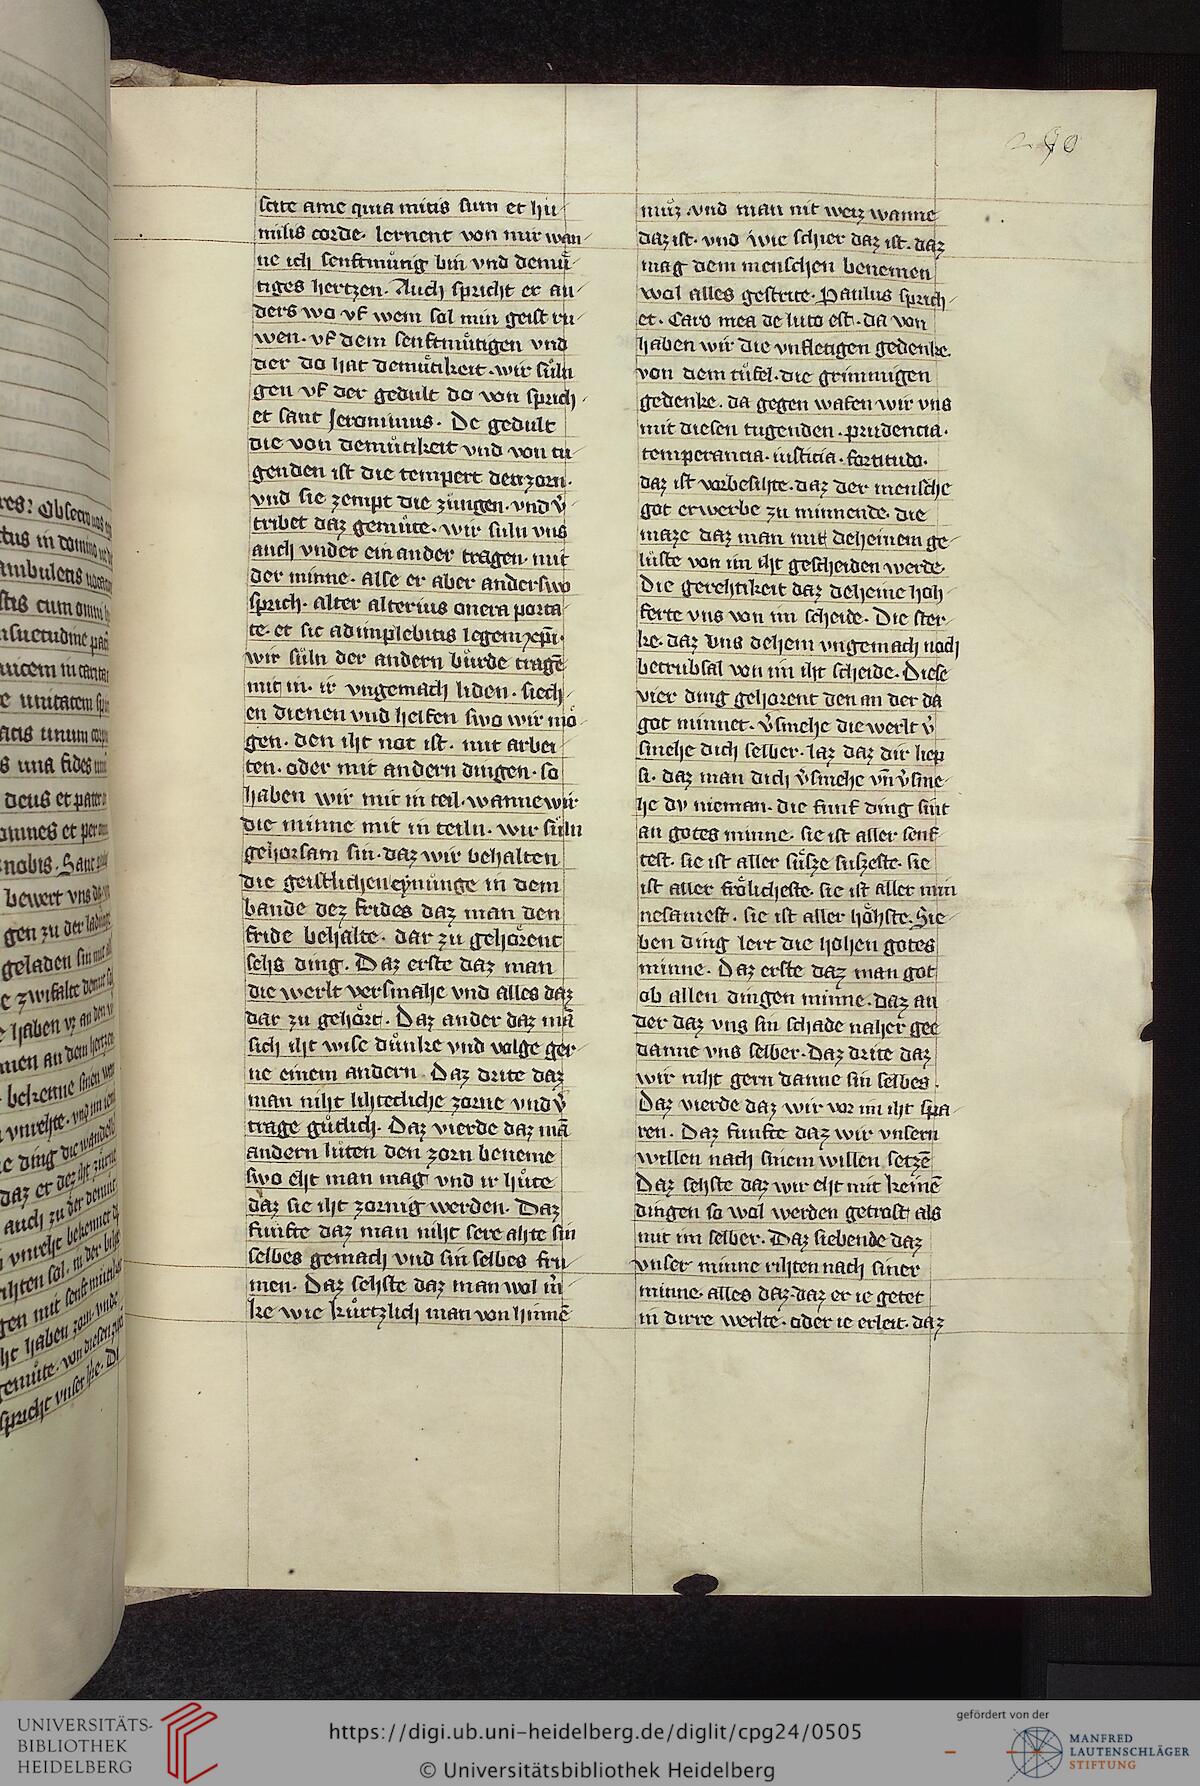 250
scite ame quia mitis sum et hu
milis corde. lernent von mir wan
ne ich senftmuͤtig bin vnd demuͤ
tiges hertzen. Auch spricht er an
ders wo vf wem sol min geist ru
wen. vf dem senftmuͤtigen vnd
der do hat demuͤtikeit. wir suͤln
gen vf der gedult do von sprich
et sant Jeronimus. De gedult
die von demuͤtikeit vnd von tu
genden ist die tempert den zorn.
vnd sie zempt die zungen. vnd v̄
tribet daz gemuͤte. wir suln vns
auch vnder ein ander tragen. mit
der minne. alse er aber anderswo
sprich. alter alterius onera porta
te. et sic adimplebitis legem xp̄i.
wir suͤln der andern buͤrde tragē
mit in. ir vngemach liden. siech
en dienen vnd helfen swo wir moͤ
gen. den iht not ist. mit arbei
ten. oder mit andern dingen. so
haben wir mit in teil. wanne wir
die minne mit in teiln. wir suͤln
gehorsam sin. daz wir behalten
die geistlichen eynunge in dem
bande dez frides daz man den
fride behalte. dar zu gehoͤrent
sehs ding. Daz erste daz man
die werlt versmahe vnd alles daz
dar zu gehoͤrt. Daz ander daz mā
sich iht wise duͤnke vnd volge ger
ne einem andern. Daz drite daz
man niht lihtecliche zorne vnd v̄
trage guͤtlich. Daz vierde daz mā
andern luͤten den zorn beneme
swo eht man mag vnd ir huͤte
daz sie iht zornig werden. Daz
funfte daz man niht sere ahte sin
selbes gemach vnd sin selbes fru
men. Daz sehste daz man wol m̄
ke wie kuͤrtzlich man von hinnē
muͤz. vnd man nit weiz wanne
daz ist. vnd wie schier daz ist. daz
mag dem menschen benemen
wol alles gestrite. Paulus sprich
et. Caro mea de luto est. da von
haben wir die vnfletigen gedenke.
von dem tuͤfel. die grimmigen
gedenke. da gegen wafen wir vns
mit diesen tugenden. prudencia.
temperancia. iusticia. fortitudo.
daz ist vorbesihte. daz der mensche
got erwerbe zu minnende. die
maze daz man mit deheinem ge
luͤste von im iht gescheiden werde.
Die gerehtikeit daz deheine hoh
ferte vns von im scheide. Die ster
ke. daz vns dehem vngemach noch
betrubsal von im iht scheide. Diese
vier ding gehorent den an der da
got minnet. v̄smehe die werlt v̄
smehe dich selber. laz daz dir liep
si. daz man dich v̄smehe vn̄ v̄sme
he dv nieman. die funf ding sint
an gotes minne. sie ist aller senf
test. sie ist aller suͤsze suszeste. sie
ist aller froͤlicheste. sie ist aller min
nesamest. sie ist aller hoͤhste. Sie
ben ding lert die hohen gotes
minne. Daz erste daz man got
ob allen dingen minne. daz an
der daz vns sin schade naher gee
danne vns selber. Daz drite daz
wir niht gern danne sin selbes.
Daz vierde daz wir vor im iht spa
ren. Daz funfte daz wir vnsern
willen nach sinem willen setzē
Daz sehste daz wir eht mit keinē
dingen so wol werden getrost als
mit im selber. Daz siebende daz
vnser minne rihten nach siner
minne. alles daz daz er ie getet
in dirre werlte. oder ie erleit. daz
UNIVERSITÄTS-
BIBLIOTHEK
HEIDELBERG
https://digi.ub.uni-heidelberg.de/diglit/cpg24/0505
© Universitätsbibliothek Heidelberg
gefördert von der
MANFRED
LAUTENSCHLÄGER
STIFTUNG